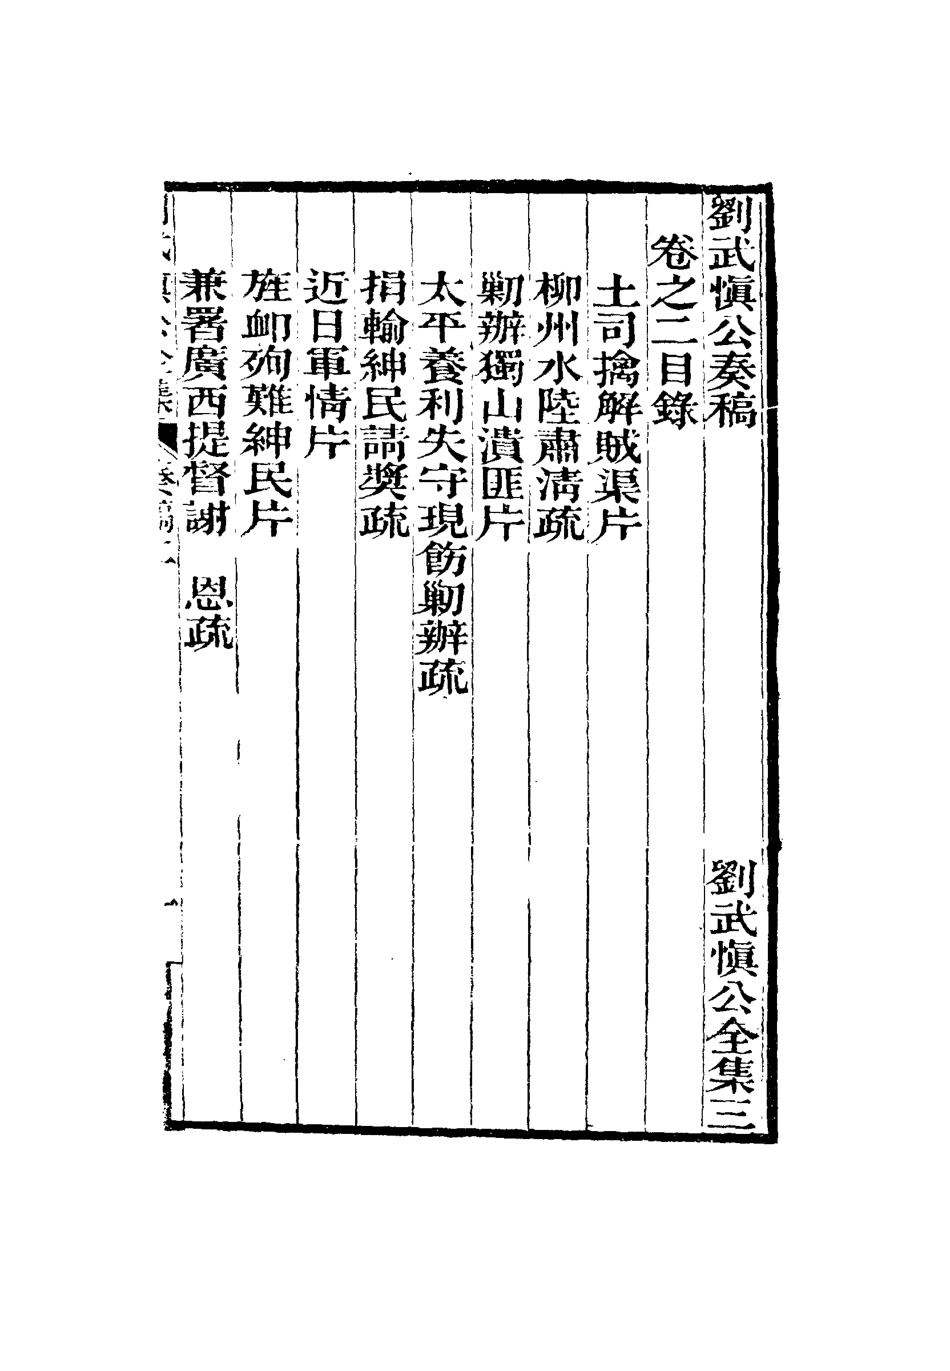 劉武愼公奏稿　劉武愼公全集三
卷之二目錄
土司擒解賊渠片
柳州水陸肅淸疏
剿辦獨山潰匪片
太平養利失守現飭剿辦疏
捐輸紳民請獎疏
近日軍情片
旌卹殉難紳民片
兼署廣西提督謝　恩疏